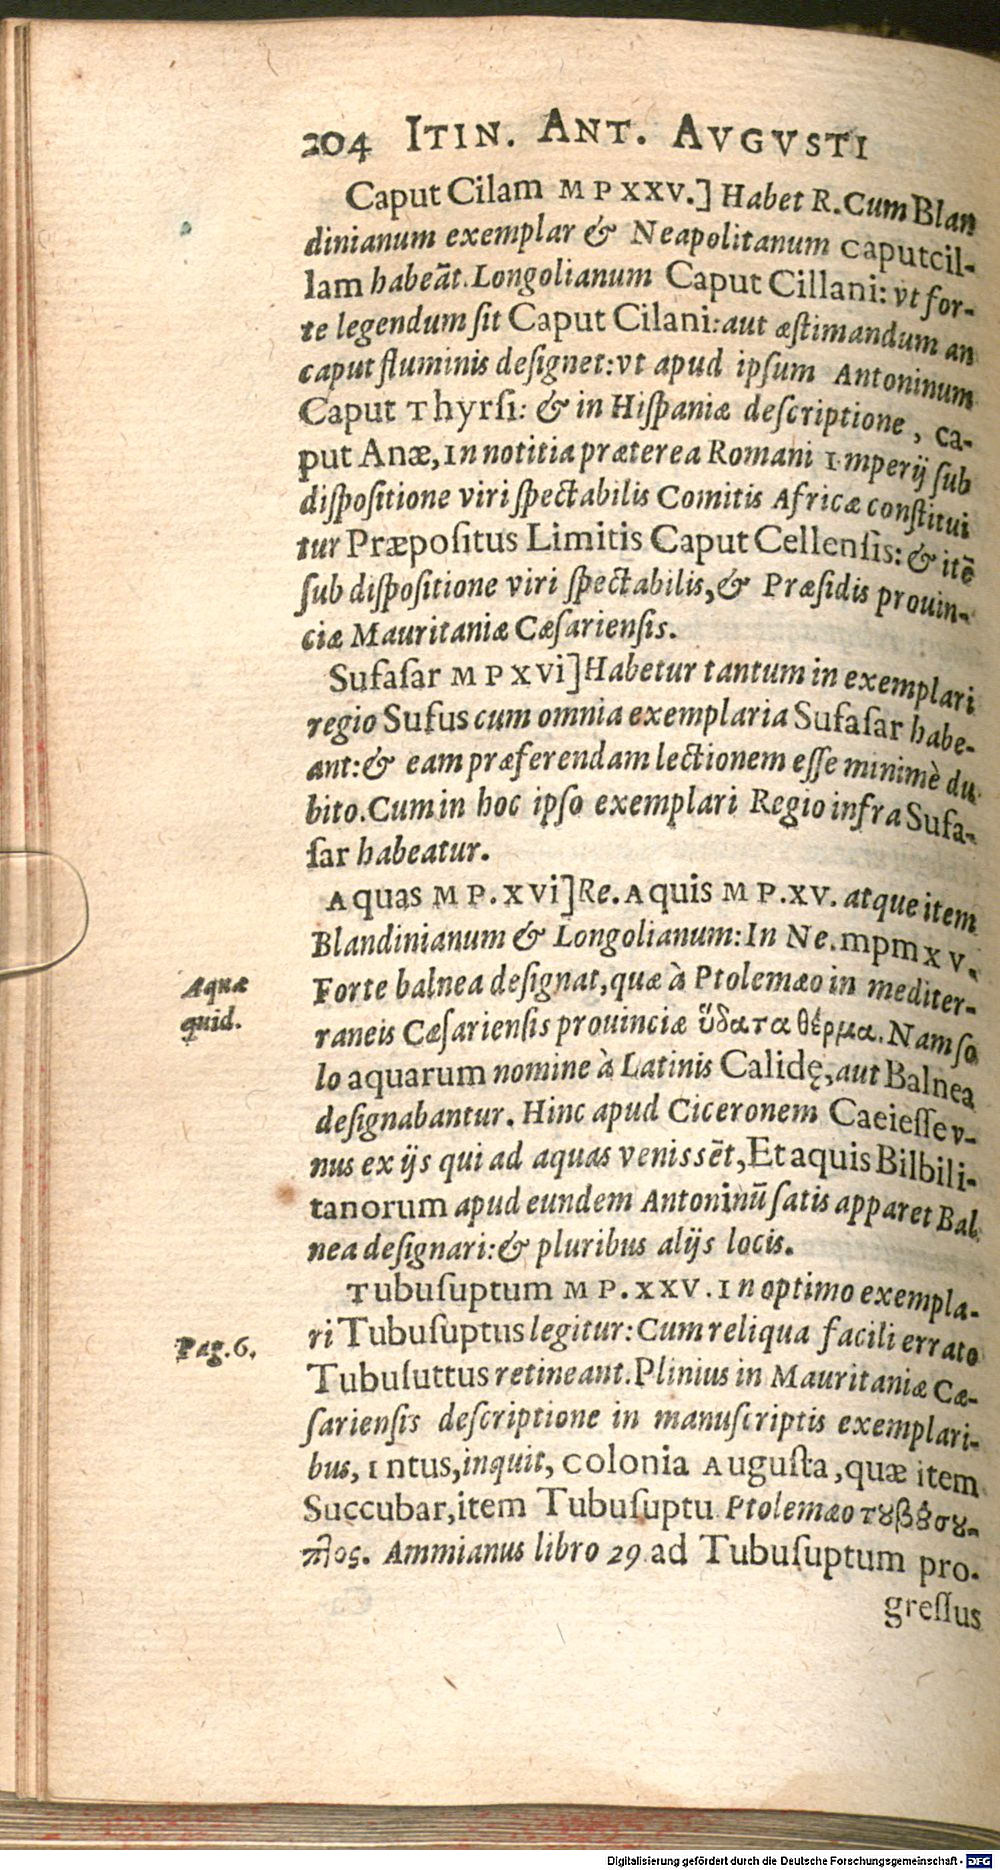 204 ITIN. ANT. AVGVSTI
Caput Cilam M P XXV.] Habet R. Cum Blan
dinianum exemplar & Neapolitanum caputcil-
lam habeãt. Longolianum Caput Cillani: vt for-
te legendum sit Caput Cilani: aut æstimandum an
caput fluminis designet: vt apud ipsum Antoninum
Caput Thyrsi: & in Hispaniæ descriptione, ca-
put Anæ, In notitia præterea Romani Imperij sub
dispositione viri spectabilis Comitis Africæ constitui
tur Præpositus Limitis Caput Cellensis: & itẽ
sub dispositione viri spectabilis, & Præsidis prouin-
ciæ Mauritaniæ Cæsariensis.
Sufasar M P XVI] Habetur tantum in exemplari
regio Sufus cum omnia exemplaria Sufasar habe-
ant: & eam præferendam lectionem esse minimè du
bito. Cum in hoc ipso exemplari Regio infra Sufa-
sar habeatur.
Aquas M P. XVI] Re. Aquis M P. XV. atque item
Blandinianum & Longolianum: In Ne. mpm x v.
Aquæ
quid.
Forte balnea designat, quæ à Ptolemæo in mediter-
raneis Cæsariensis prouinciæ ὕδατα θέρμα. Nam so
lo aquarum nomine à Latinis Calidę, aut Balnea
designabantur. Hinc apud Ciceronem Caeiesse v-
nus ex ijs qui ad aquas venissẽt, Et aquis Bilbili-
tanorum apud eundem Antoninũ satis apparet Bal
nea designari: & pluribus alijs locis.
Tubusuptum M P. XXV. In optimo exempla-
Pag. 6.
ri Tubusuptus legitur: Cum reliqua facili errato
Tubusuttus retineant. Plinius in Mauritaniæ Cæ-
sariensis descriptione in manuscriptis exemplari-
bus, Intus, inquit, Colonia Augusta, quæ item
Succubar, item Tubusuptu Ptolemæo τȣβȣ́σȣ-
πτος. Ammianus libro 29 ad Tubusuptum pro-
gressus
Digitalisierung gefördert durch die Deutsche Forschungsgemeinschaft - DFG